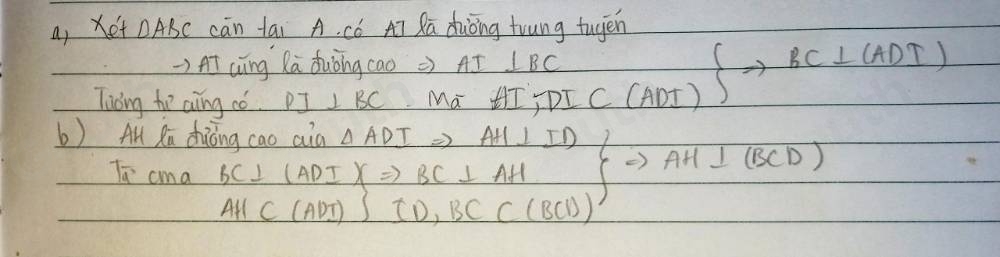 a, Xét ΔABC cân tại A. có AI là đường trung tuyến
→ AI cũng là đường cao ⇒ AI ⊥ BC
Tương tự cũng có. DI ⊥ BC. Mà AI, DI ⊂ (ADI) } ⇒ BC ⊥ (ADI)
b) AH là đường cao của Δ ADI ⇒ AH ⊥ ID
Từ cma BC ⊥ (ADI) } ⇒ BC ⊥ AH } ⇒ AH ⊥ (BCD)
AH ⊂ (ADI) } ID, BC ⊂ (BCD)